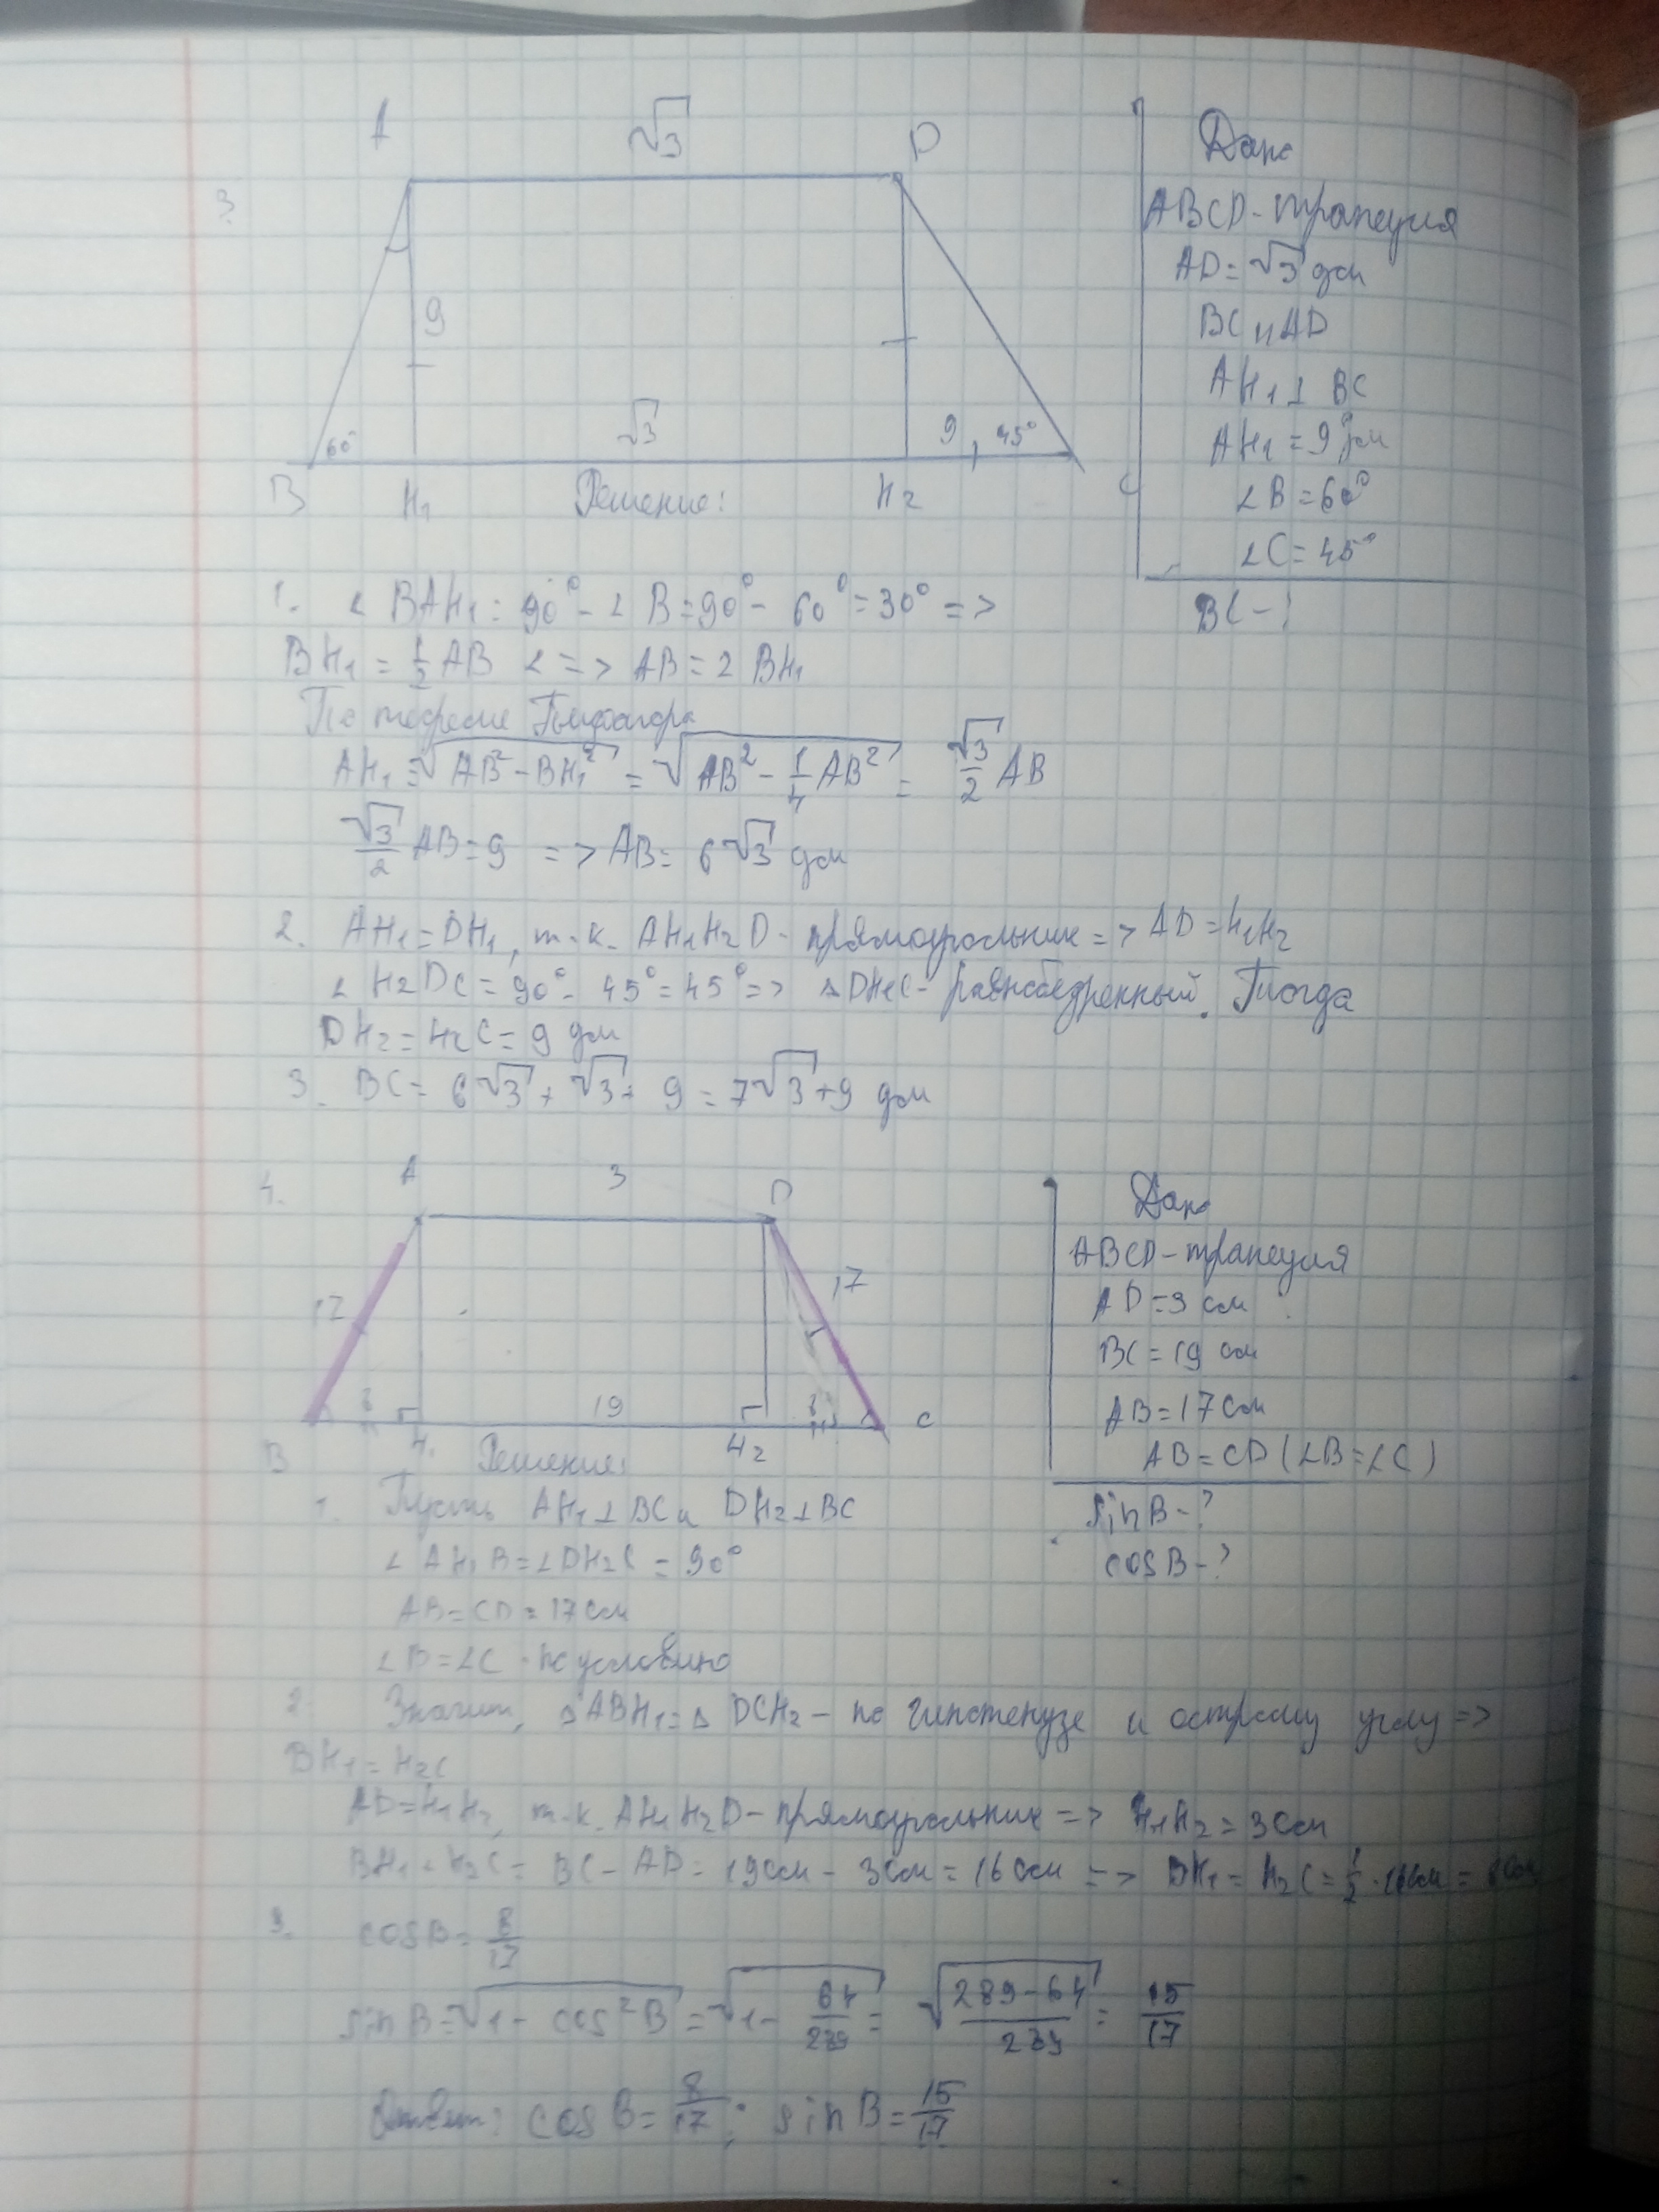 3.
A √3 D
9
60° √3 9 45°
B H₁ H₂ C
Дано
ABCD - трапеция
AD = √3 дм
BC и AD
AH₁ ⊥ BC
AH₁ = 9 дм
∠B = 60°
∠C = 45°
BC - ?
Решение:
1. ∠BAH₁ = 90° - ∠B = 90° - 60° = 30° =>
BH₁ = 1/2 AB <=> AB = 2 BH₁
По теореме Пифагора
AH₁ = √(AB² - BH₁²) = √(AB² - 1/4 AB²) = √3/2 AB
√3/2 AB = 9 => AB = 6√3 дм
2. AH₁ = DH₁, т.к. AH₁H₂D - прямоугольник => AD = H₁H₂
∠H₂DC = 90° - 45° = 45° => △DH₂C - равнобедренный. Тогда
DH₂ = H₂C = 9 дм
3. BC = 6√3 + √3 + 9 = 7√3 + 9 дм
4.
A 3 D
17 17
8 19 8
B H₁ H₂ C
Дано
ABCD - трапеция
AD = 3 см
BC = 19 см
AB = 17 см
AB = CD (∠B = ∠C)
sinB - ?
cosB - ?
Решение:
1. Пусть AH₁ ⊥ BC и DH₂ ⊥ BC
∠AH₁B = ∠DH₂C = 90°
AB = CD = 17 см
∠B = ∠C - по условию
2. Значит, △ABH₁ = △DCH₂ - по гипотенузе и острому углу =>
BH₁ = H₂C
AD = H₁H₂, т.к. AH₁H₂D - прямоугольник => H₁H₂ = 3 см
BH₁ + H₂C = BC - AD = 19 см - 3 см = 16 см => BH₁ = H₂C = 1/2 · 16 см = 8 см
3. cosB = 8/17
sinB = √(1 - cos²B) = √(1 - 64/289) = √((289 - 64)/289) = 15/17
Ответ: cosB = 8/17; sinB = 15/17